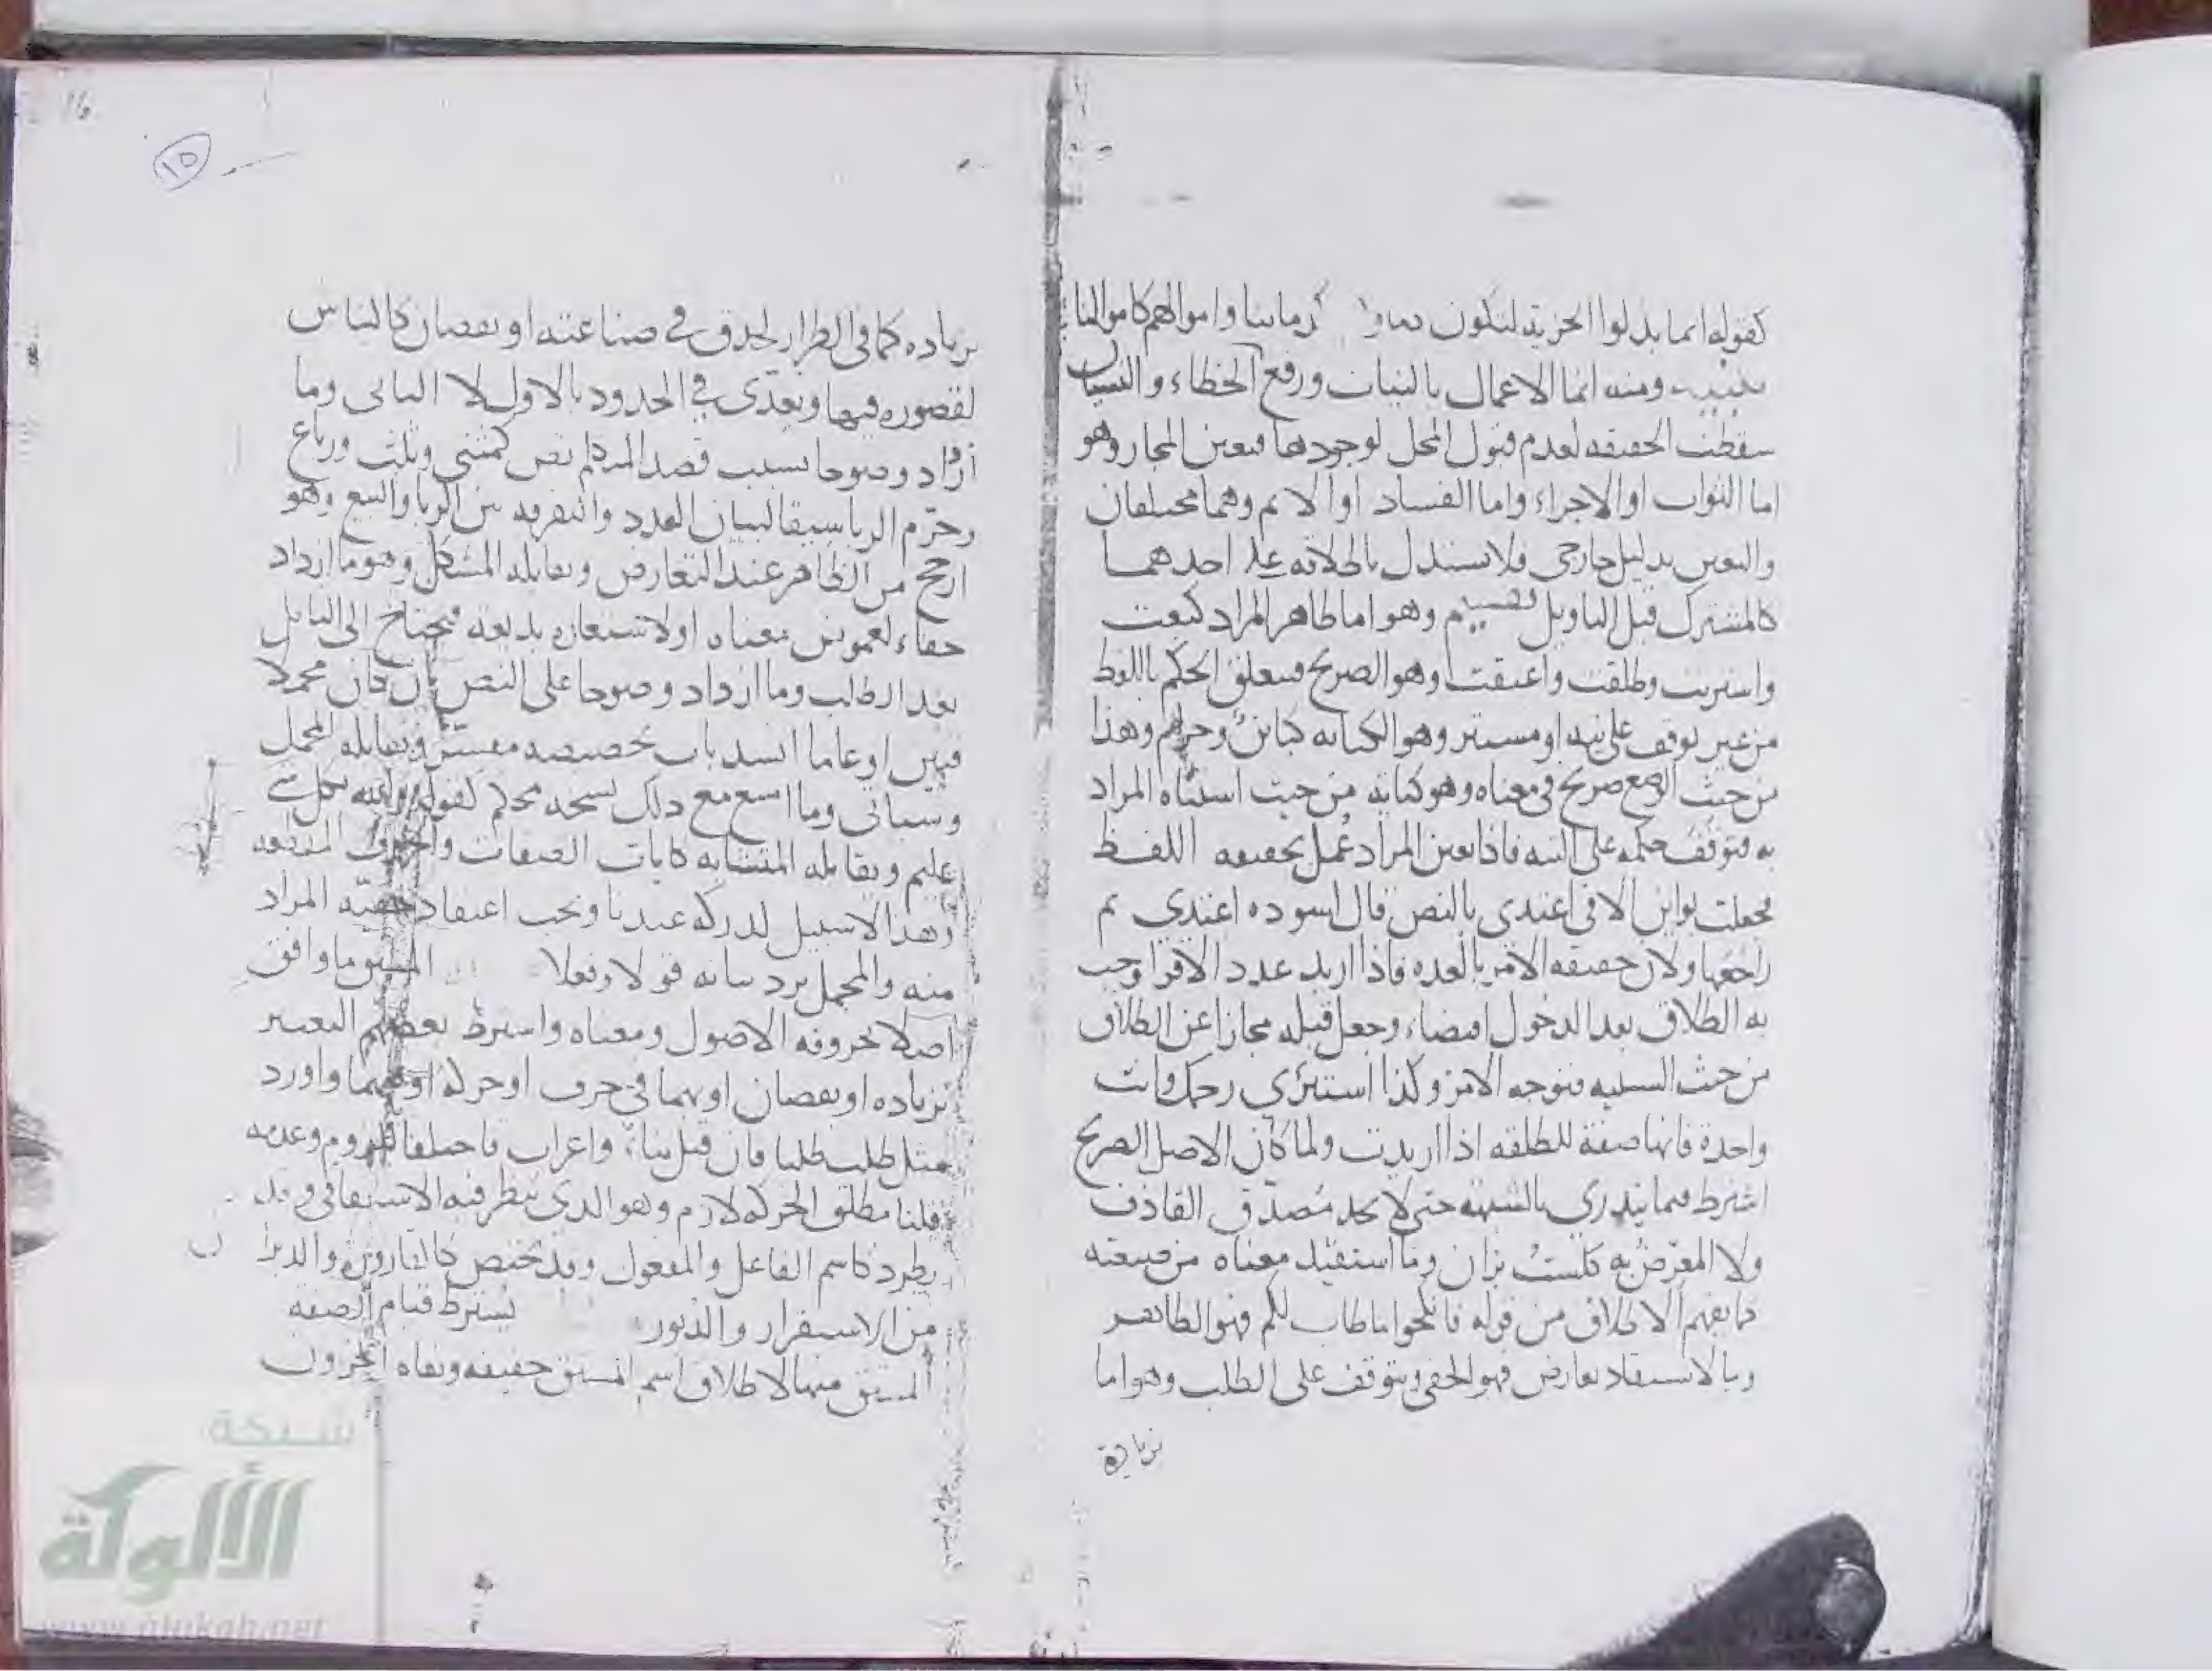 كقوله انما بذلوا الجزية لتكون دماؤ كدماينا واموالهم كاموالنا
ومنه انما الاعمال بالنيات ورفع الخطاء والنسيان
سقطت الحقيقه لعدم قبول المحل لوجودها فتعين المجاز وهو
اما الثواب او الاجراء واما الفساد او الاثم وهما مختلفان
والتعين بدليل خارجى فلا يستدل باطلاقه على احدهما
كالمشترك قبل التاويل تقسيم وهو اما ظاهر المراد كبعت
واشتريت وطلقت واعتقت وهو الصريح فيتعلق الحكم باللفظ
من غير توقف على نيه او مستتر وهو الكنايه كباين وحرام وهذا
من حيث الوضع صريح فى معناه وهو كنايه من حيث استتاه المراد
به فتوقف حكمه على النيه فاذا تعين المراد عمل بحقيقه اللفظ
فجعلت بواين الا فى اعتدى بالنص قال لسوده اعتدي ثم
راجعها ولان حقيقه الامر بالعده فاذا اريد عدد الاقرا وجب
به الطلاق بعد الدخول اقتضاء وجعل قبله مجازا عن الطلاق
من حيث السببيه فتوجه الامر وكذا استبرئي رحمك وانت
واحدة فانها صفة للطلقه اذا اريدت ولما كان الاصل الصريح
اشترط فيما يندري بالشبهه حتى لا يحد مصدق القاذف
ولا المعرض به كلست بزان وما استفيد معناه من صيغته
كما يفهم الاطلاق من قوله فانكحوا ما طاب لكم فهو الظاهر
وبالاستقلا تعارض فهو الخفى ويتوقف على الطلب وهو اما
زيادة
١٥
16
بزياده كما فى الطرار لحذق في صناعته او نقصان كالنباش
لقصوره فيها وتعدى في الحدود بالاول لا الثانى وما
ازداد وضوحا بسبب قصد المتكلم نص كمثنى وثلث ورباع
وحرم الربا سيقا لبيان العدد والتفرقه بين الربا والبيع وهو
ارجح من الظاهر عند التعارض ويقابله المشكل وهو ما ازداد
خفاء لغموض معناه او لاستعاره بديعه فيحتاج الى التامل
بعد الطلب وما ازداد وضوحا على النص بان كان مجملا
فبين او عاما انسد باب تخصيصه مفسر ويقابله المجمل
وسياتى وما امتنع مع ذلك نسخه محكم كقوله والله بكل شي
عليم ويقابله المتشابه كايات الصفات والحروف المقطعه
وهذا لا سبيل لدركه عندنا ويجب اعتقاد حقيه المراد
منه والمجمل يرد بيانه قولا وفعلا المشتق ما وافق
اصلا بحروفه الاصول ومعناه واشترط بعضهم التغيير
بزياده او نقصان او بهما في حرف او حركة او فيهما واورد
مثل طلب طلبا فان قيل بناء واعراب فاختلفا قلزوم وعدمه
قلنا مطلق الحركه لازم وهو الذي ينظر فيه الاشتقاقى وقد
يطرد كاسم الفاعل والمفعول وقد يختص كالقارورة والدبران
من الاستقرار والدبور يشترط قيام الصفه
المشتق منها لاطلاق اسم المشتق حقيقه ونفاه اخرون
شبكة
الألوكة
www.alukah.net